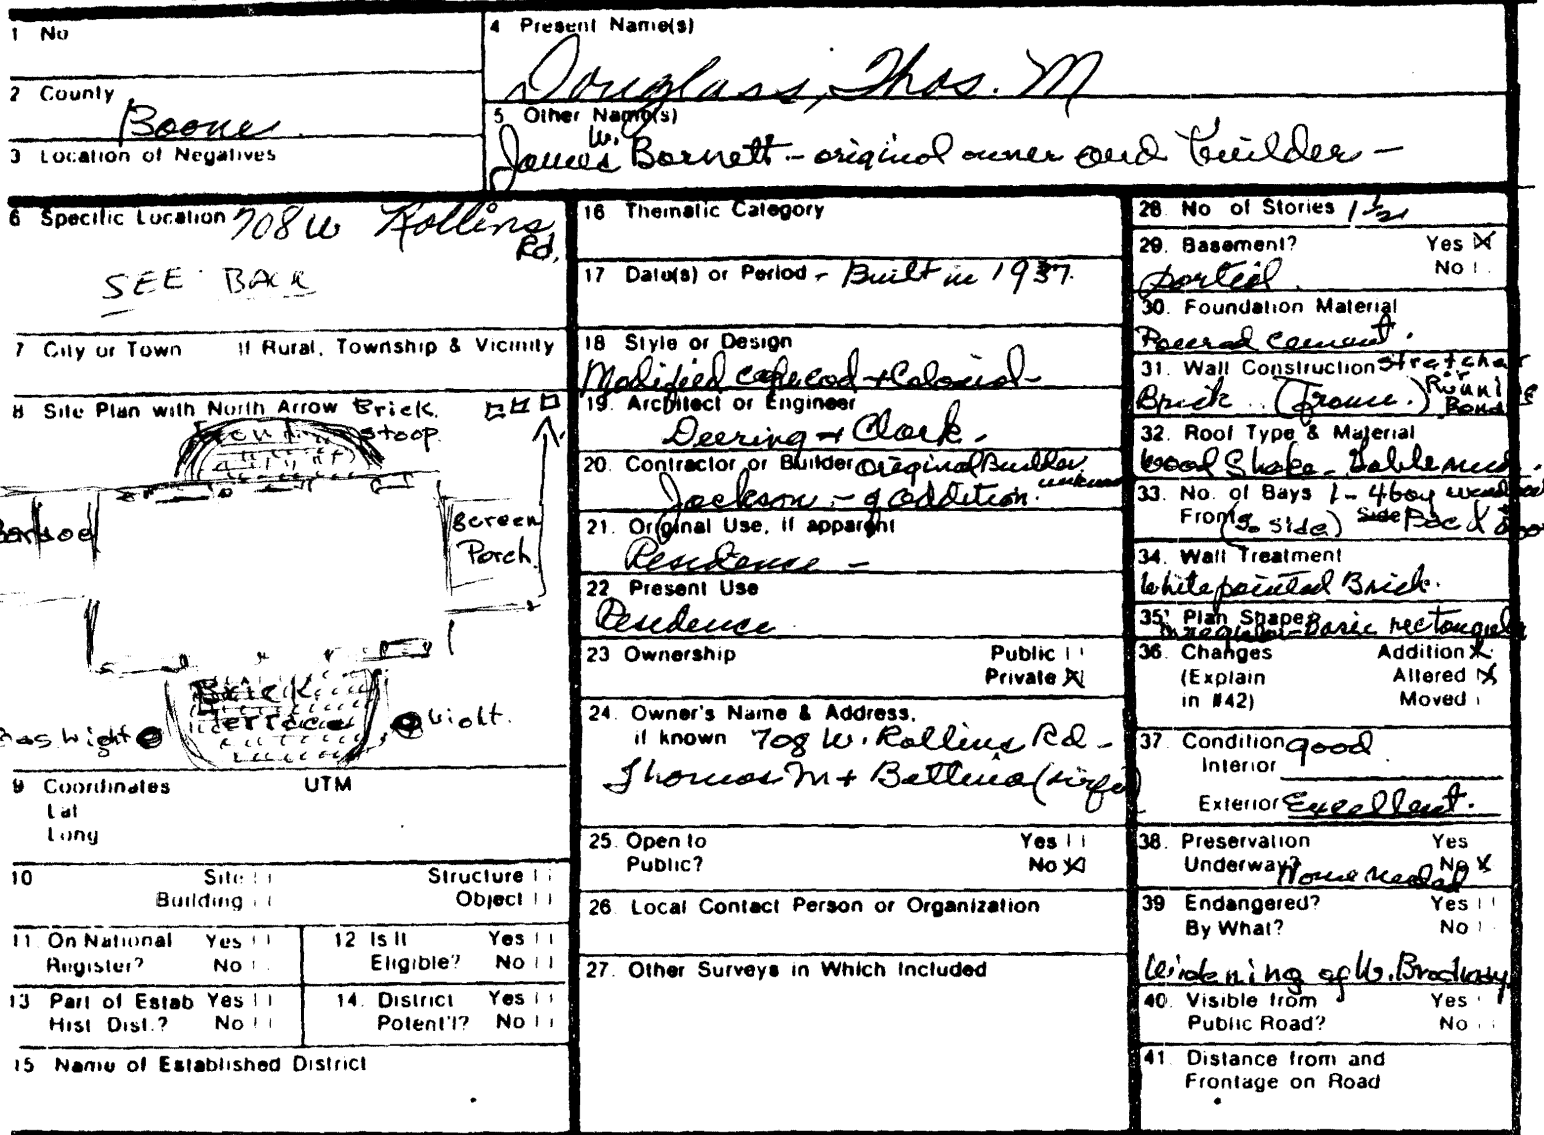 1 No
2 County
Boone
3 Location of Negatives
4 Present Name(s)
Douglass, Thos. M
5 Other Name(s)
James W. Barnett - original owner and builder -
6 Specific Location 708 W Rollins Rd.
SEE BACK
7 City or Town If Rural, Township & Vicinity
8 Site Plan with North Arrow Brick
stoop.
Screen
Porch
Brick
terrace
Gas Light
Light.
9 Coordinates UTM
Lat
Long
10 Site Structure
Building Object
11 On National Yes
Register? No
12 Is It Yes
Eligible? No
13 Part of Estab Yes
Hist Dist.? No
14. District Yes
Potent'l? No
15 Name of Established District
16 Thematic Category
17 Date(s) or Period - Built in 1937.
18 Style or Design
Modified cape cod + Colonial -
19. Architect or Engineer
Deering + Clark -
20. Contractor or Builder original Builder unknown
Jackson - of addition.
21. Original Use, if apparent
Residence -
22 Present Use
Residence
23 Ownership Public
Private X
24. Owner's Name & Address,
if known 708 W. Rollins Rd -
Thomas M + Bettina (wife)
25. Open to Yes
Public? No X
26 Local Contact Person or Organization
27. Other Surveys in Which Included
28 No of Stories 1 1/2
29. Basement? Yes X
partial No
30. Foundation Material
Poured cement.
31. Wall Construction Stretcher
or
Brick (Frame.) Running
Bond
32. Roof Type & Material
Wood Shake - Gable
33. No. of Bays 1 - 4 bay window
Front (So Side) Side Back door
34. Wall Treatment
White painted Brick.
35. Plan Shape
Irregular - Basic rectangular
36. Changes Addition X
(Explain Altered X
in #42) Moved
37. Condition good
Interior
Exterior Excellent.
38. Preservation Yes
Underway? No X
None needed
39 Endangered? Yes
By What? No
Widening of W. Broadway
40. Visible from Yes
Public Road? No
41. Distance from and
Frontage on Road